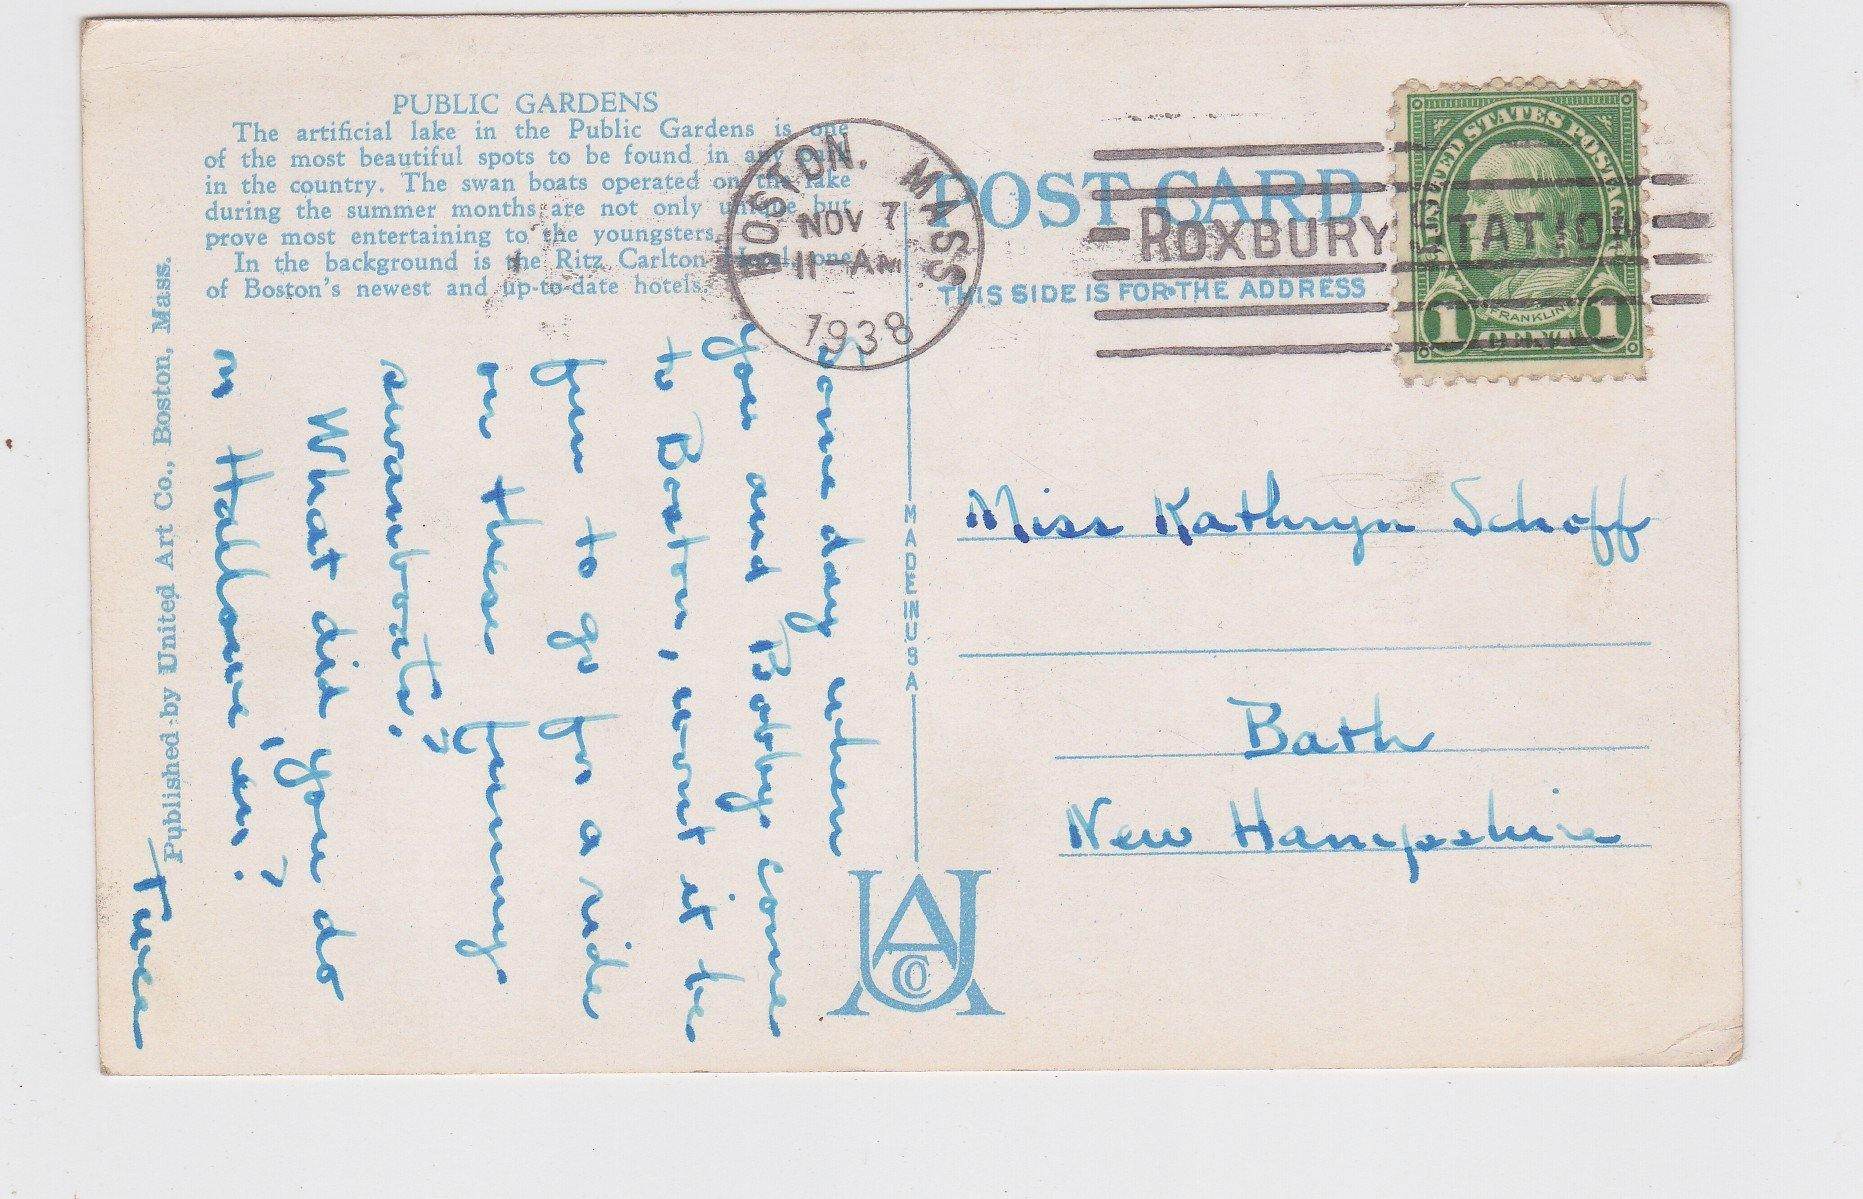 PUBLIC GARDENS
The artificial lake in the Public Gardens is one
of the most beautiful spots to be found in any
in the country. The swan boats operated on the lake
during the summer months are not only unique but
prove most entertaining to the youngsters.
In the background is the Ritz Carlton Hotel, one
of Boston's newest and up-to-date hotels.
Published by United Art Co., Boston, Mass.
BOSTON, MASS.
NOV 7
11-AM
1938
POST CARD
ROXBURY STATION
THIS SIDE IS FOR THE ADDRESS
UNITED STATES POSTAGE
FRANKLIN
1 CENT 1
MADE IN USA
Some day when
you and Bobby come
to Boston, won't it be
fun to go for a ride
on these "funny
swanboats."
What did you do
on Hallowe'en?
Miss Kathryn Schoff
Bath
New Hampshire
UACO